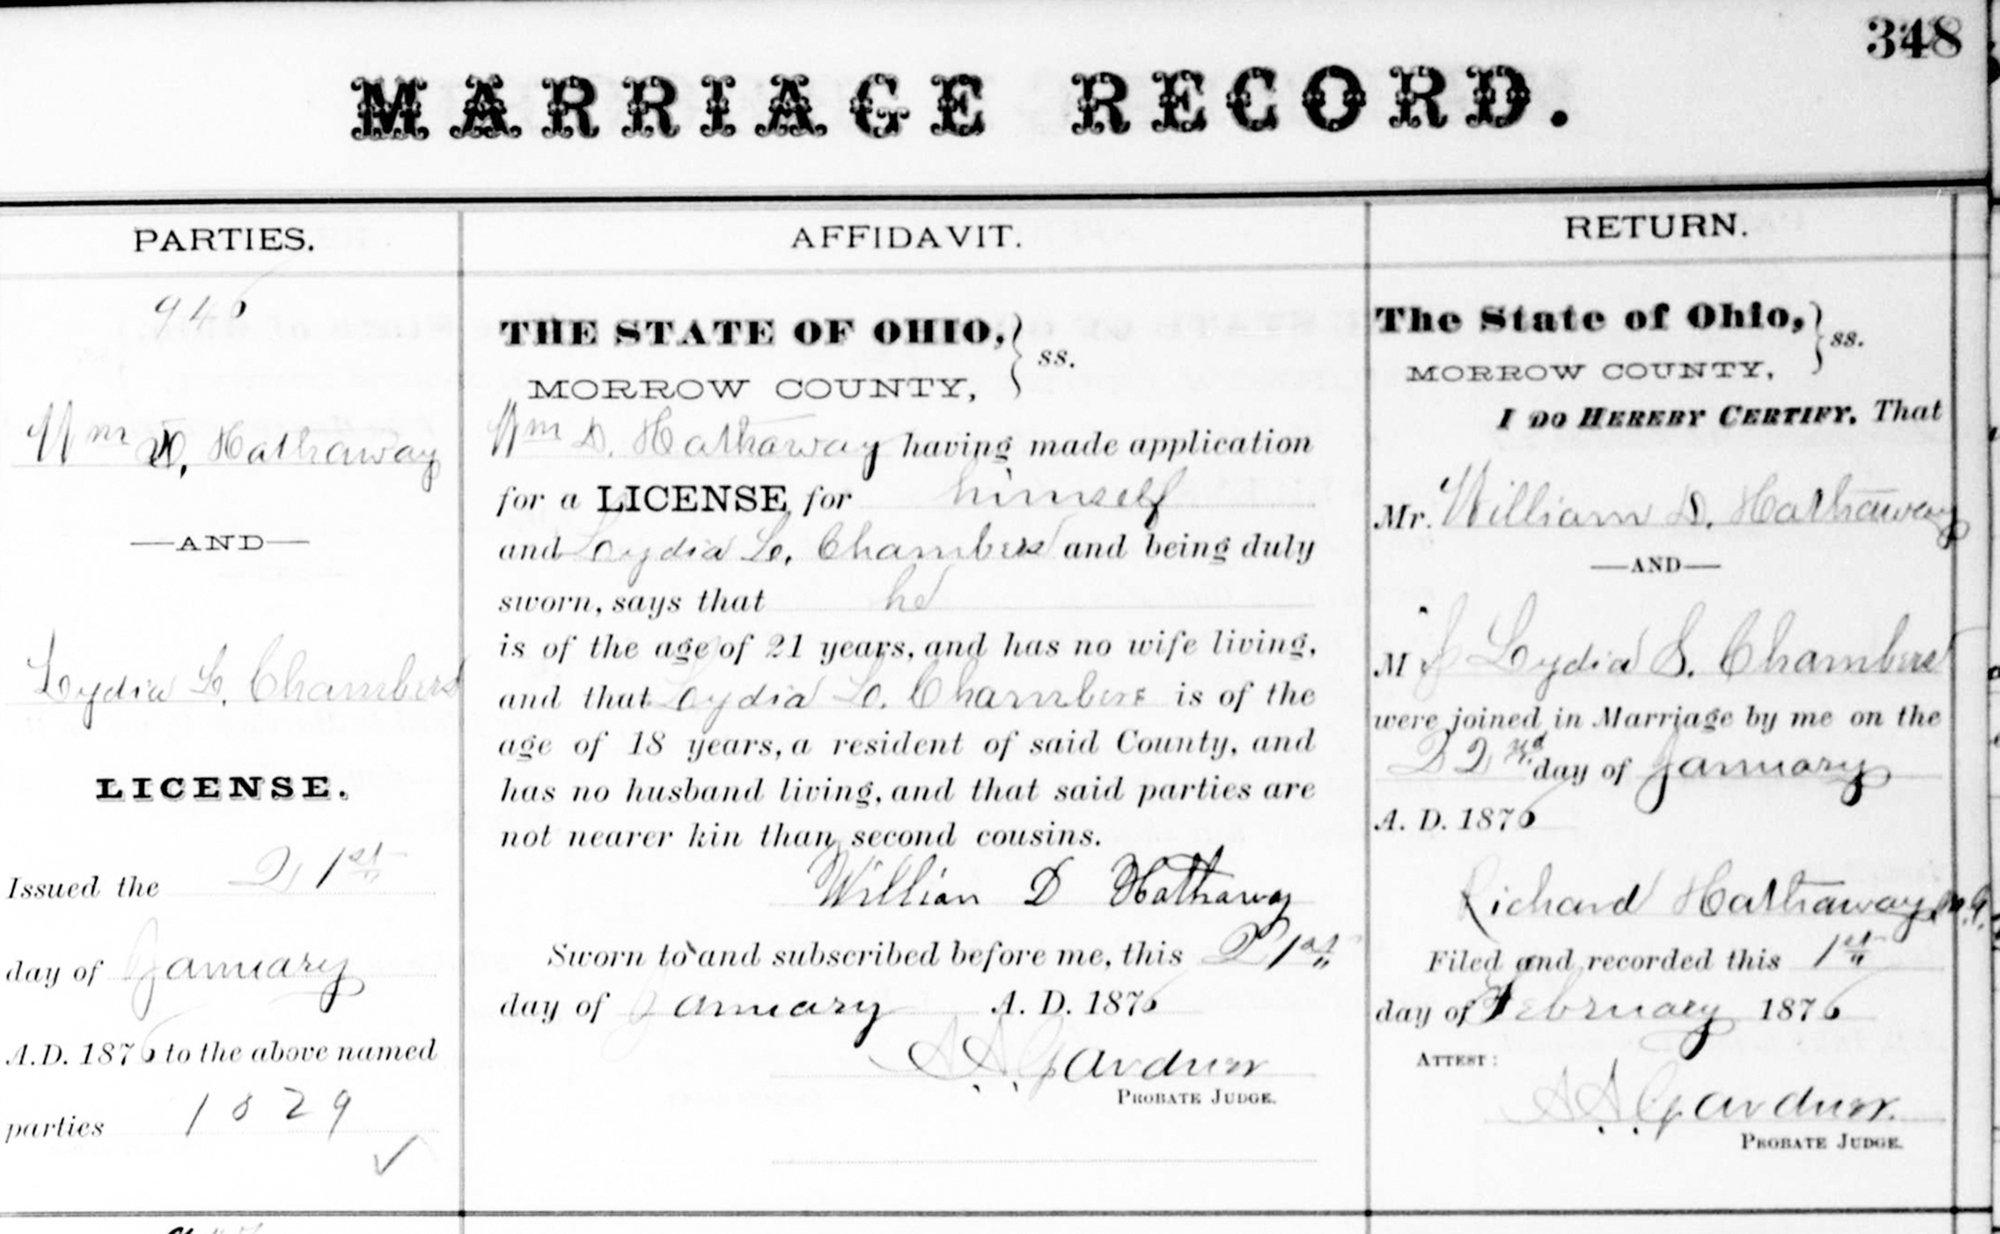 348
MARRIAGE RECORD.
PARTIES.
946
Wm D. Hathaway
—AND—
Lydia L. Chambers
LICENSE.
Issued the 21st
day of January
A.D. 1876 to the above named
parties 1829
✓
AFFIDAVIT.
THE STATE OF OHIO,} ss.
MORROW COUNTY,
Wm D. Hathaway having made application
for a LICENSE for himself
and Lydia L. Chambers and being duly
sworn, says that he
is of the age of 21 years, and has no wife living,
and that Lydia L. Chambers is of the
age of 18 years, a resident of said County, and
has no husband living, and that said parties are
not nearer kin than second cousins.
William D Hathaway
Sworn to and subscribed before me, this 21st
day of January A. D. 1876
A. A. Gardner
PROBATE JUDGE.
RETURN.
The State of Ohio,} ss.
MORROW COUNTY,
I DO HEREBY CERTIFY, That
Mr. William D. Hathaway
—AND—
M Lydia S. Chambers
were joined in Marriage by me on the
22nd day of January
A. D. 1876
Richard Hathaway, M.G.
Filed and recorded this 1st
day of February 1876
ATTEST:
A. A. Gardner.
PROBATE JUDGE.